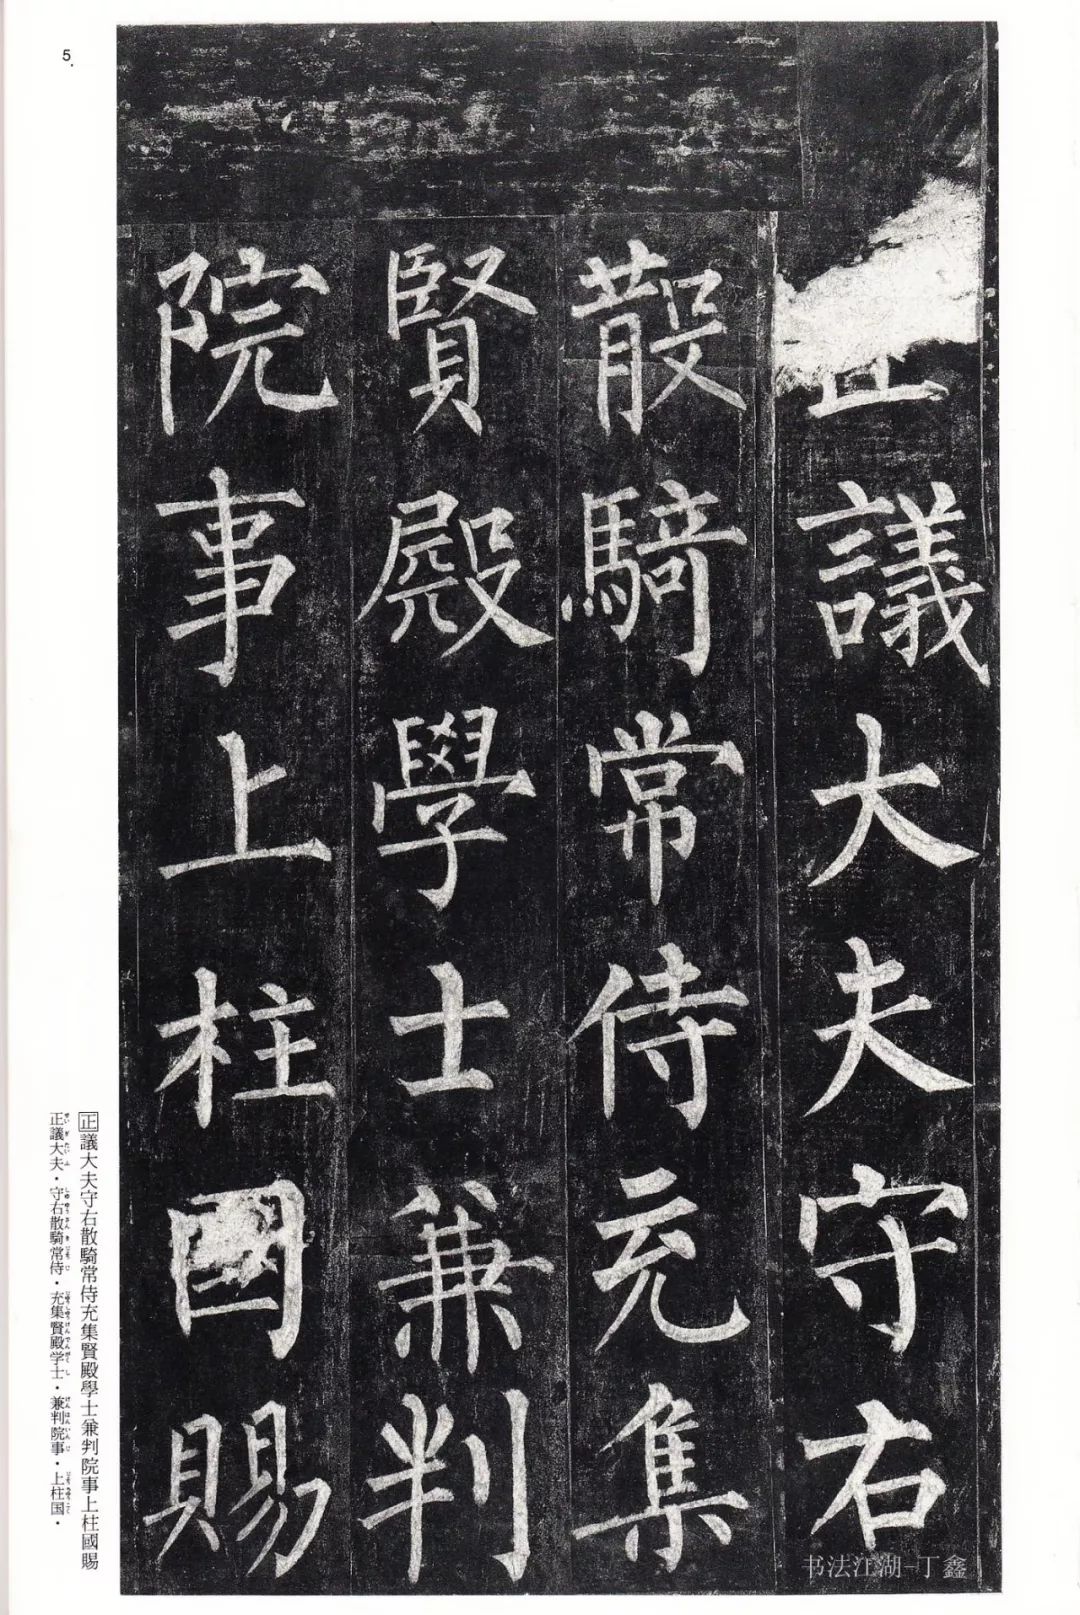 5
正議大夫守右
散騎常侍充集
賢殿學士兼判
院事上柱國賜
正議大夫守右散騎常侍充集賢殿學士兼判院事上柱國賜
正議大夫・守右散騎常侍・充集賢殿学士・兼判院事・上柱国・
书法江湖-丁鑫